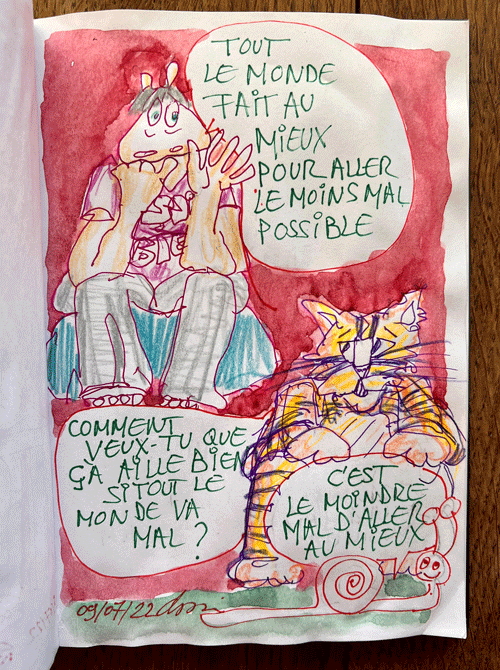 TOUT
LE MONDE
FAIT AU
MIEUX
POUR ALLER
LE MOINS MAL
POSSIBLE
COMMENT
VEUX-TU QUE
ÇA AILLE BIEN
SI TOUT LE
MONDE VA
MAL ?
C'EST
LE MOINDRE
MAL D'ALLER
AU MIEUX
09/07/22